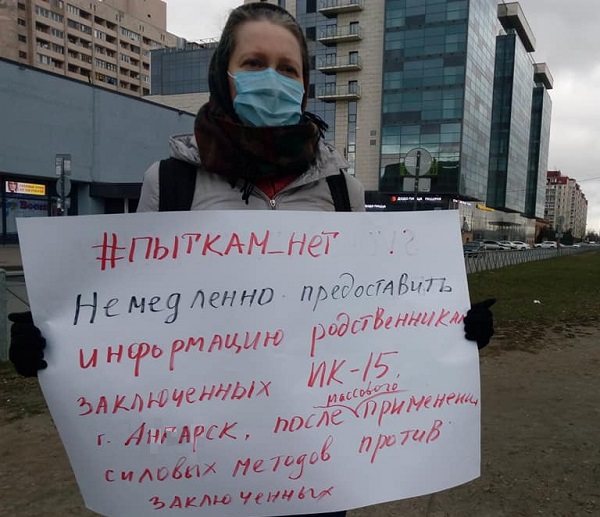 #ПЫТКАМ_НЕТ
Немедленно предоставить
информацию родственникам
заключенных ИК-15,
массового
г. Ангарск, после применения
силовых методов против
заключенных